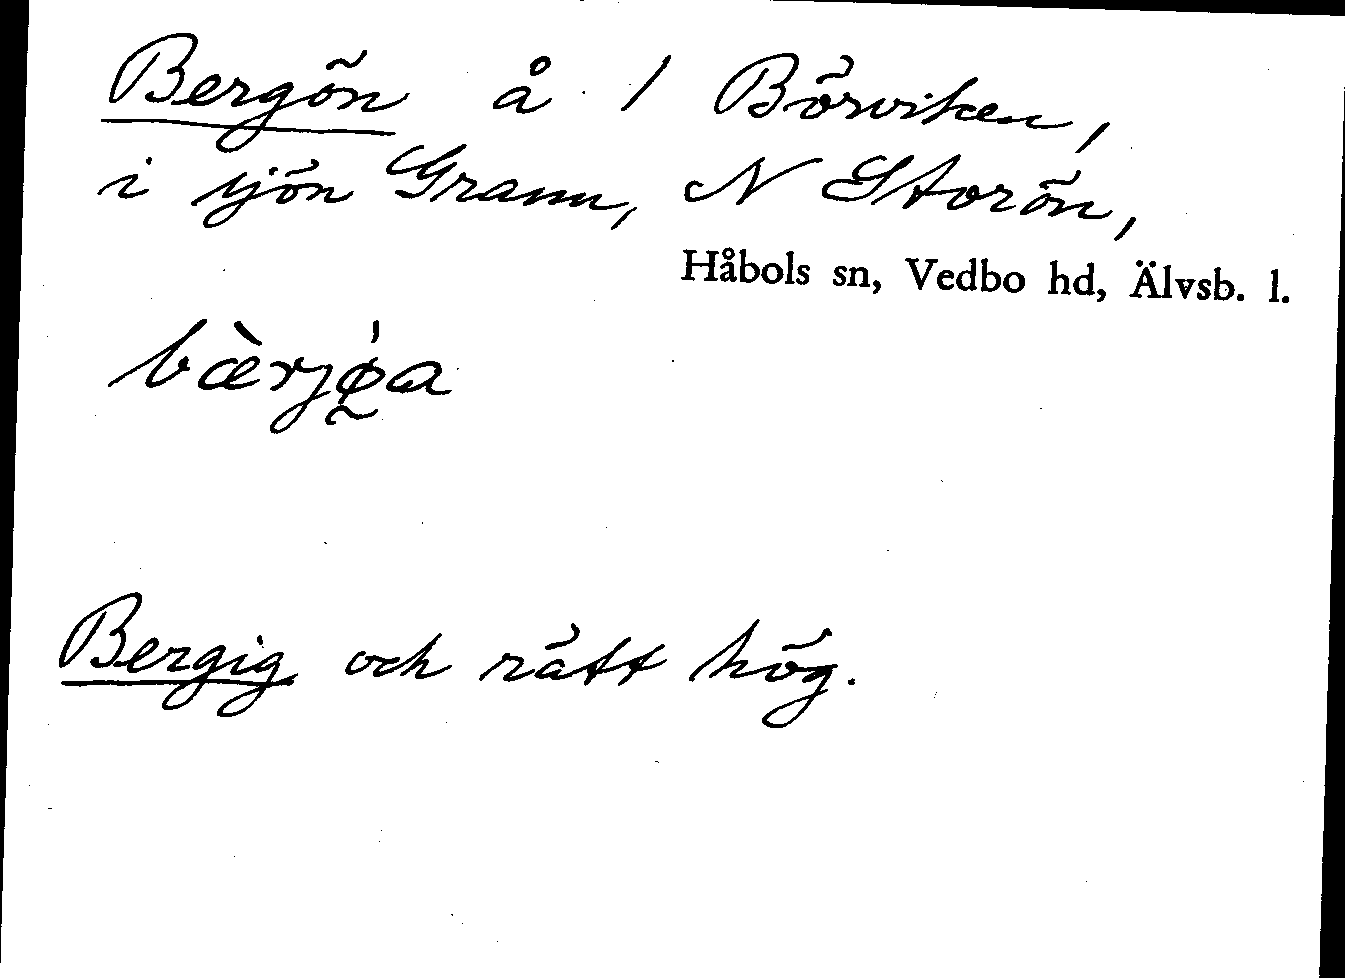 Bergön å 1 Börviken,
i sjön Grann, N Storön,
Håbols sn, Vedbo hd, Älvsb. l.
bæ̀rjø̰̍a
Bergig och rätt hög.